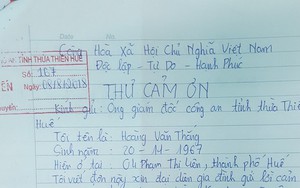 Cộng Hòa Xã Hội Chủ Nghĩa Việt Nam
TỈNH THỪA THIÊN HUẾ
Độc lập - Tự Do - Hạnh Phúc
Số: 107
THƯ CẢM ƠN
Kính gửi: Ông giám đốc công an tỉnh thừa Thiên
Huế.
Tôi tên là: Hoàng Văn Thắng
Sinh năm: 20 - 11 - 1967
Hiện ở tại: Phạm Thị Liên, thành phố Huế
Tôi viết đơn này xin đại diện gia đình gửi lời cảm